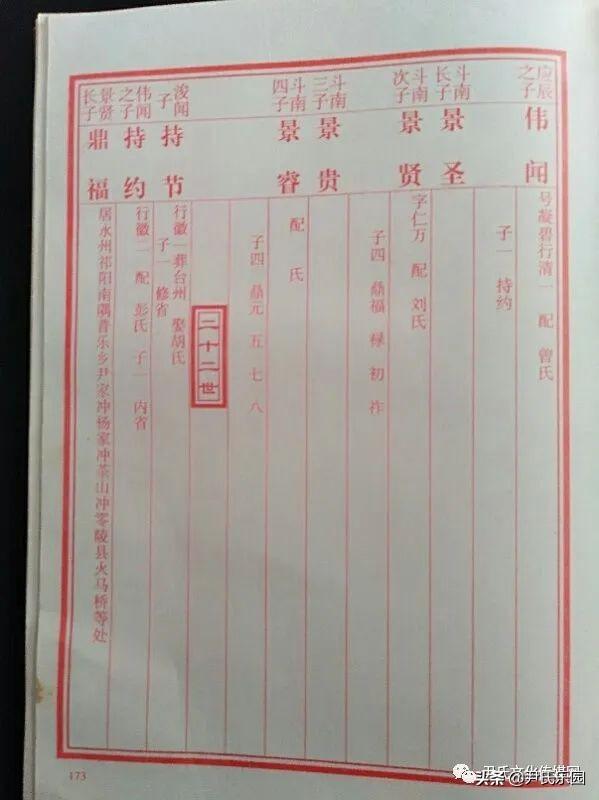 应辰
之子
伟闻
号凝碧行清一 配 曾氏
子一 持约
斗南
长子
景圣
斗南
次子
景贤
字仁万 配 刘氏
子四 鼎福 禄 初 祚
斗南
三子
景贵
斗南
四子
景睿
配 氏
子四 鼎元 五 七 八
二十二世
浚闻
子
持节
行徽一葬台州 娶胡氏
子一 修省
伟闻
之子
持约
行徽二 配 彭氏 子一 内省
景贤
长子
鼎福
居永州祁阳南隅普乐乡尹家冲杨家冲茶山冲零陵县火马桥等处
173
尹氏文化传媒
头条@尹氏乐园